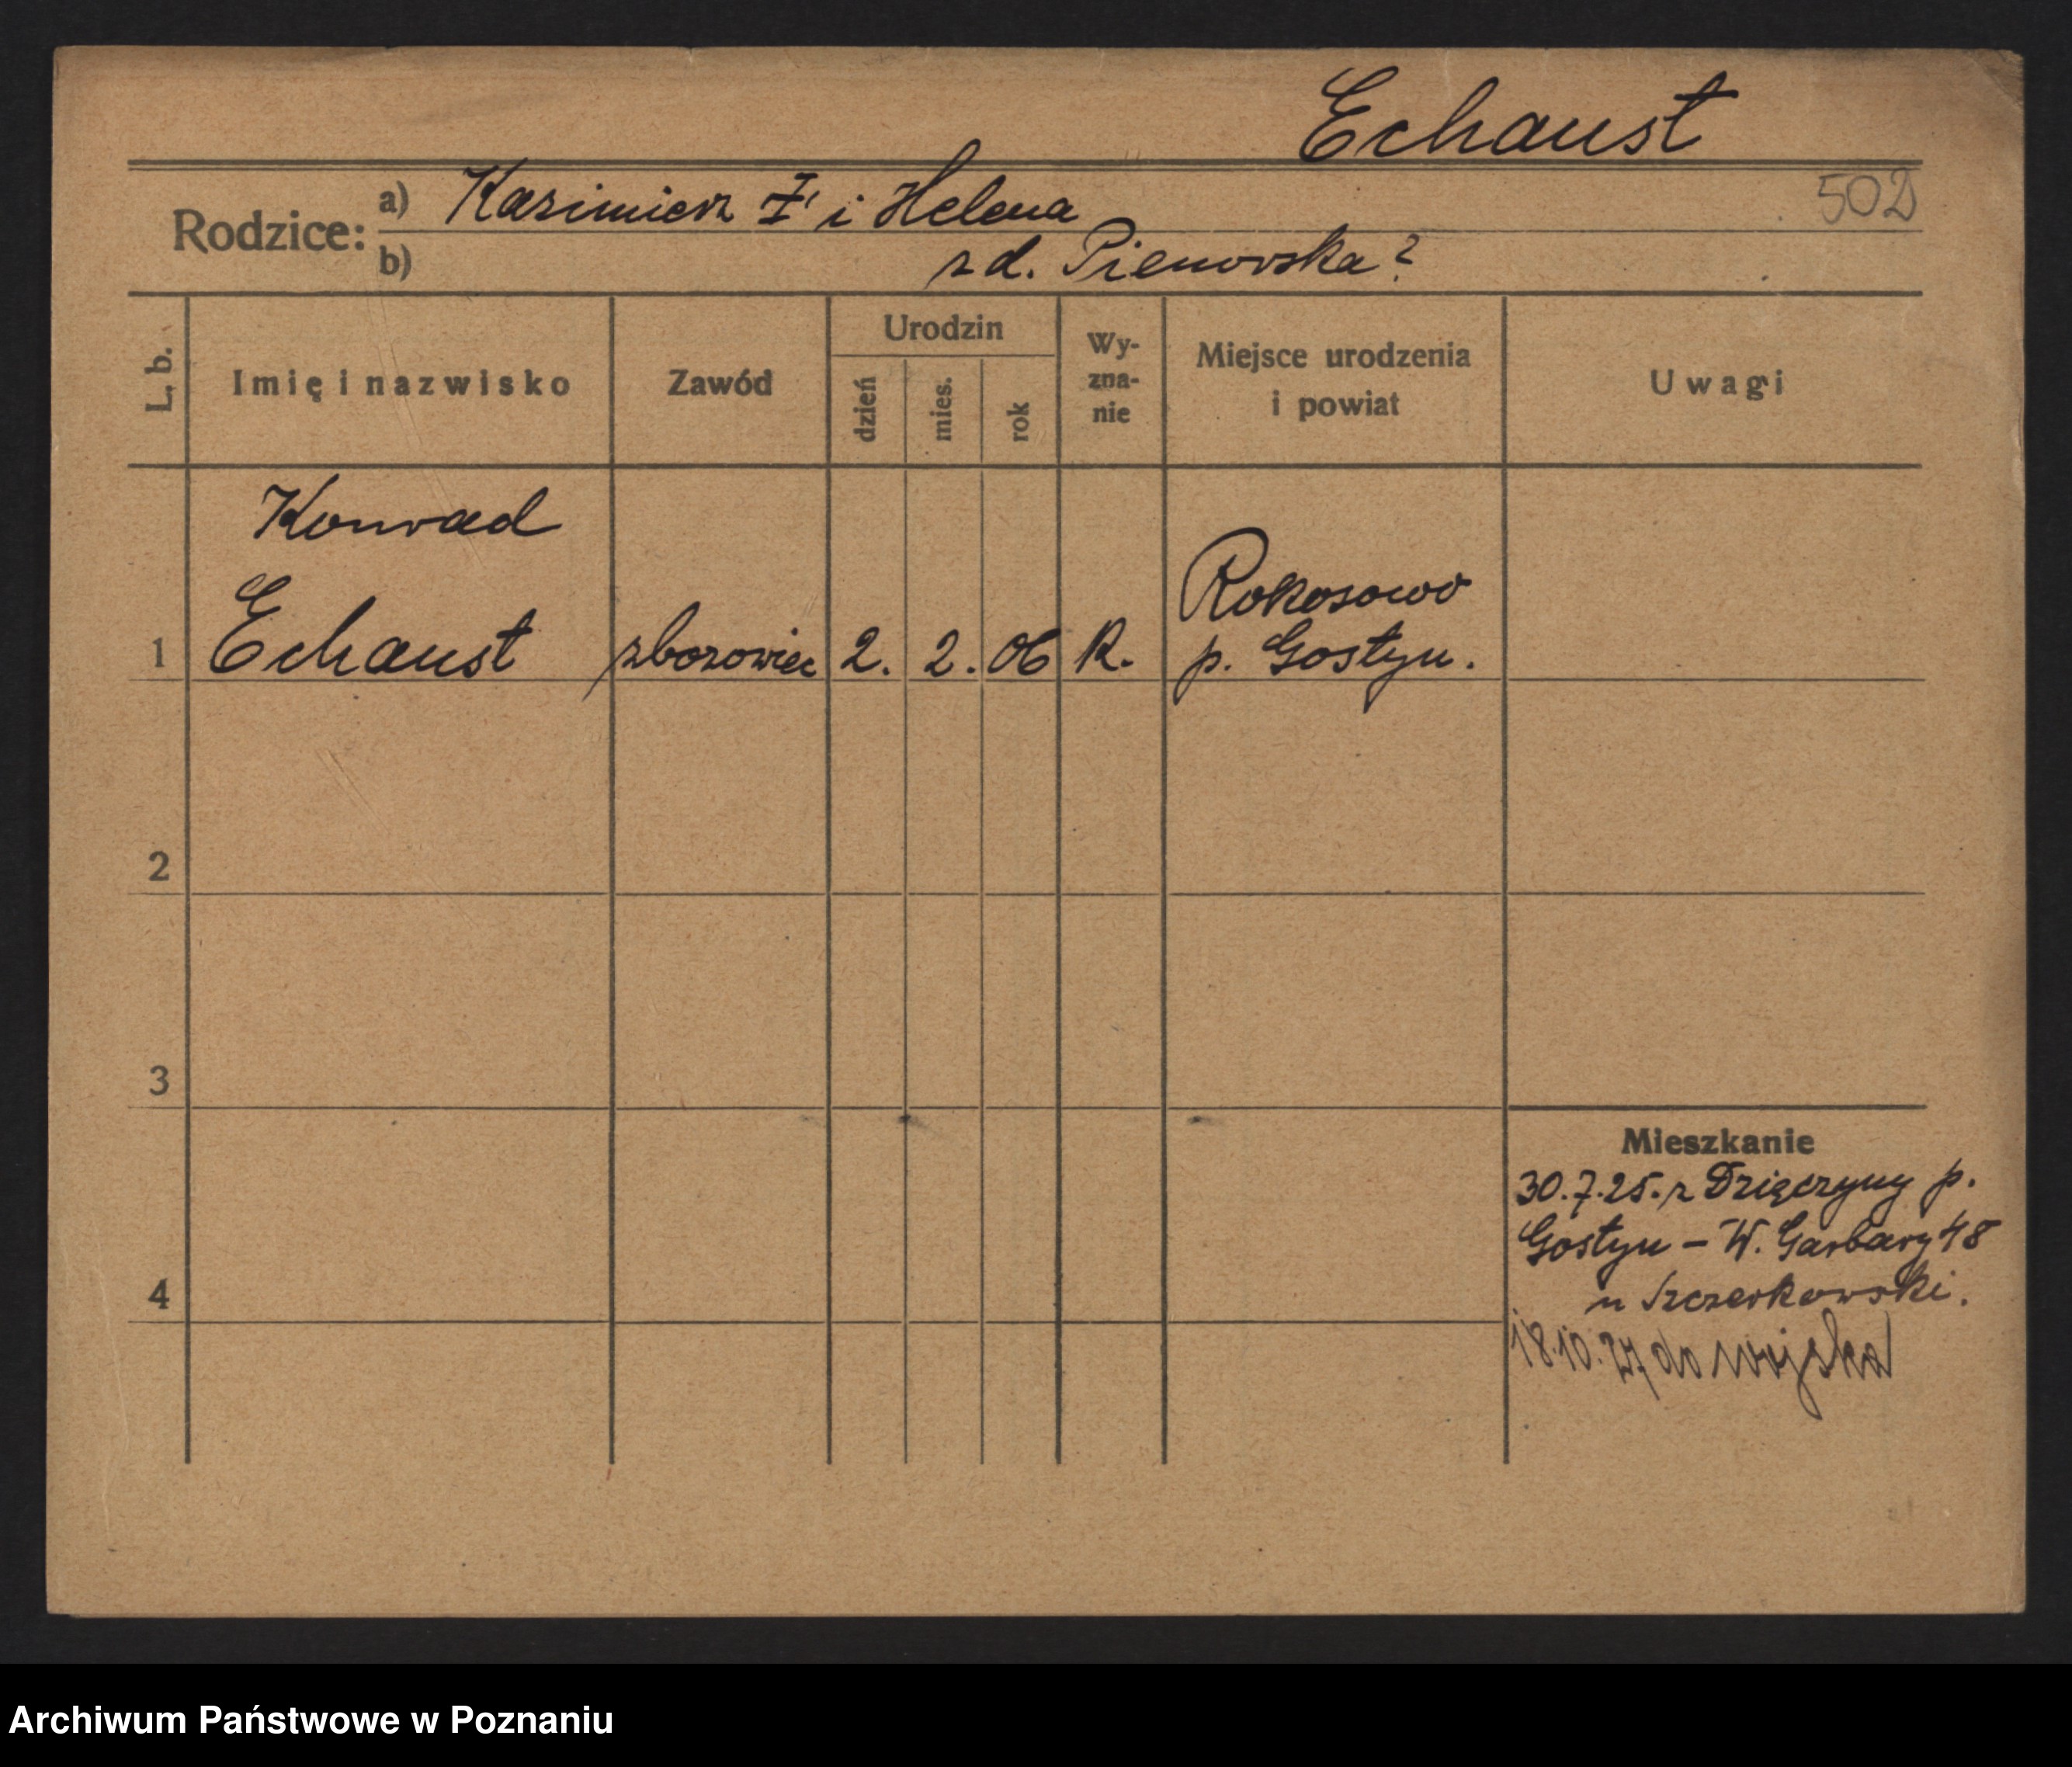 Echaust
502
Rodzice:
a) Kazimierz Ƶ i Helena
b) z d. Pienovska?
L. b.
Imię i nazwisko
Zawód
Urodzin
dzień
mies.
rok
Wy-
zna-
nie
Miejsce urodzenia
i powiat
Uwagi
Konrad
1 Echaust zbozowiec 2. 2. 06 R. Rokosowo
p. Gostyn.
2
3
4
Mieszkanie
30.7.25. z Dzięczyny p.
Gostyn – W. Garbary 48
u Szczerkowski.
18.10.27 do wojska
Archiwum Państwowe w Poznaniu